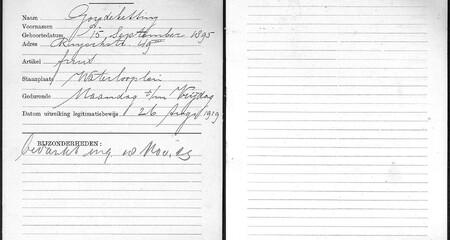 Naam
Voornamen
Geboortedatum 15 September 1895
Adres
Artikel fruit
Staanplaats Waterlooplein
Gedurende Maandag t/m Vrijdag
Datum uitreiking legitimatiebewijs 26 1919
BIJZONDERHEDEN:
bedankt ing. Nov.